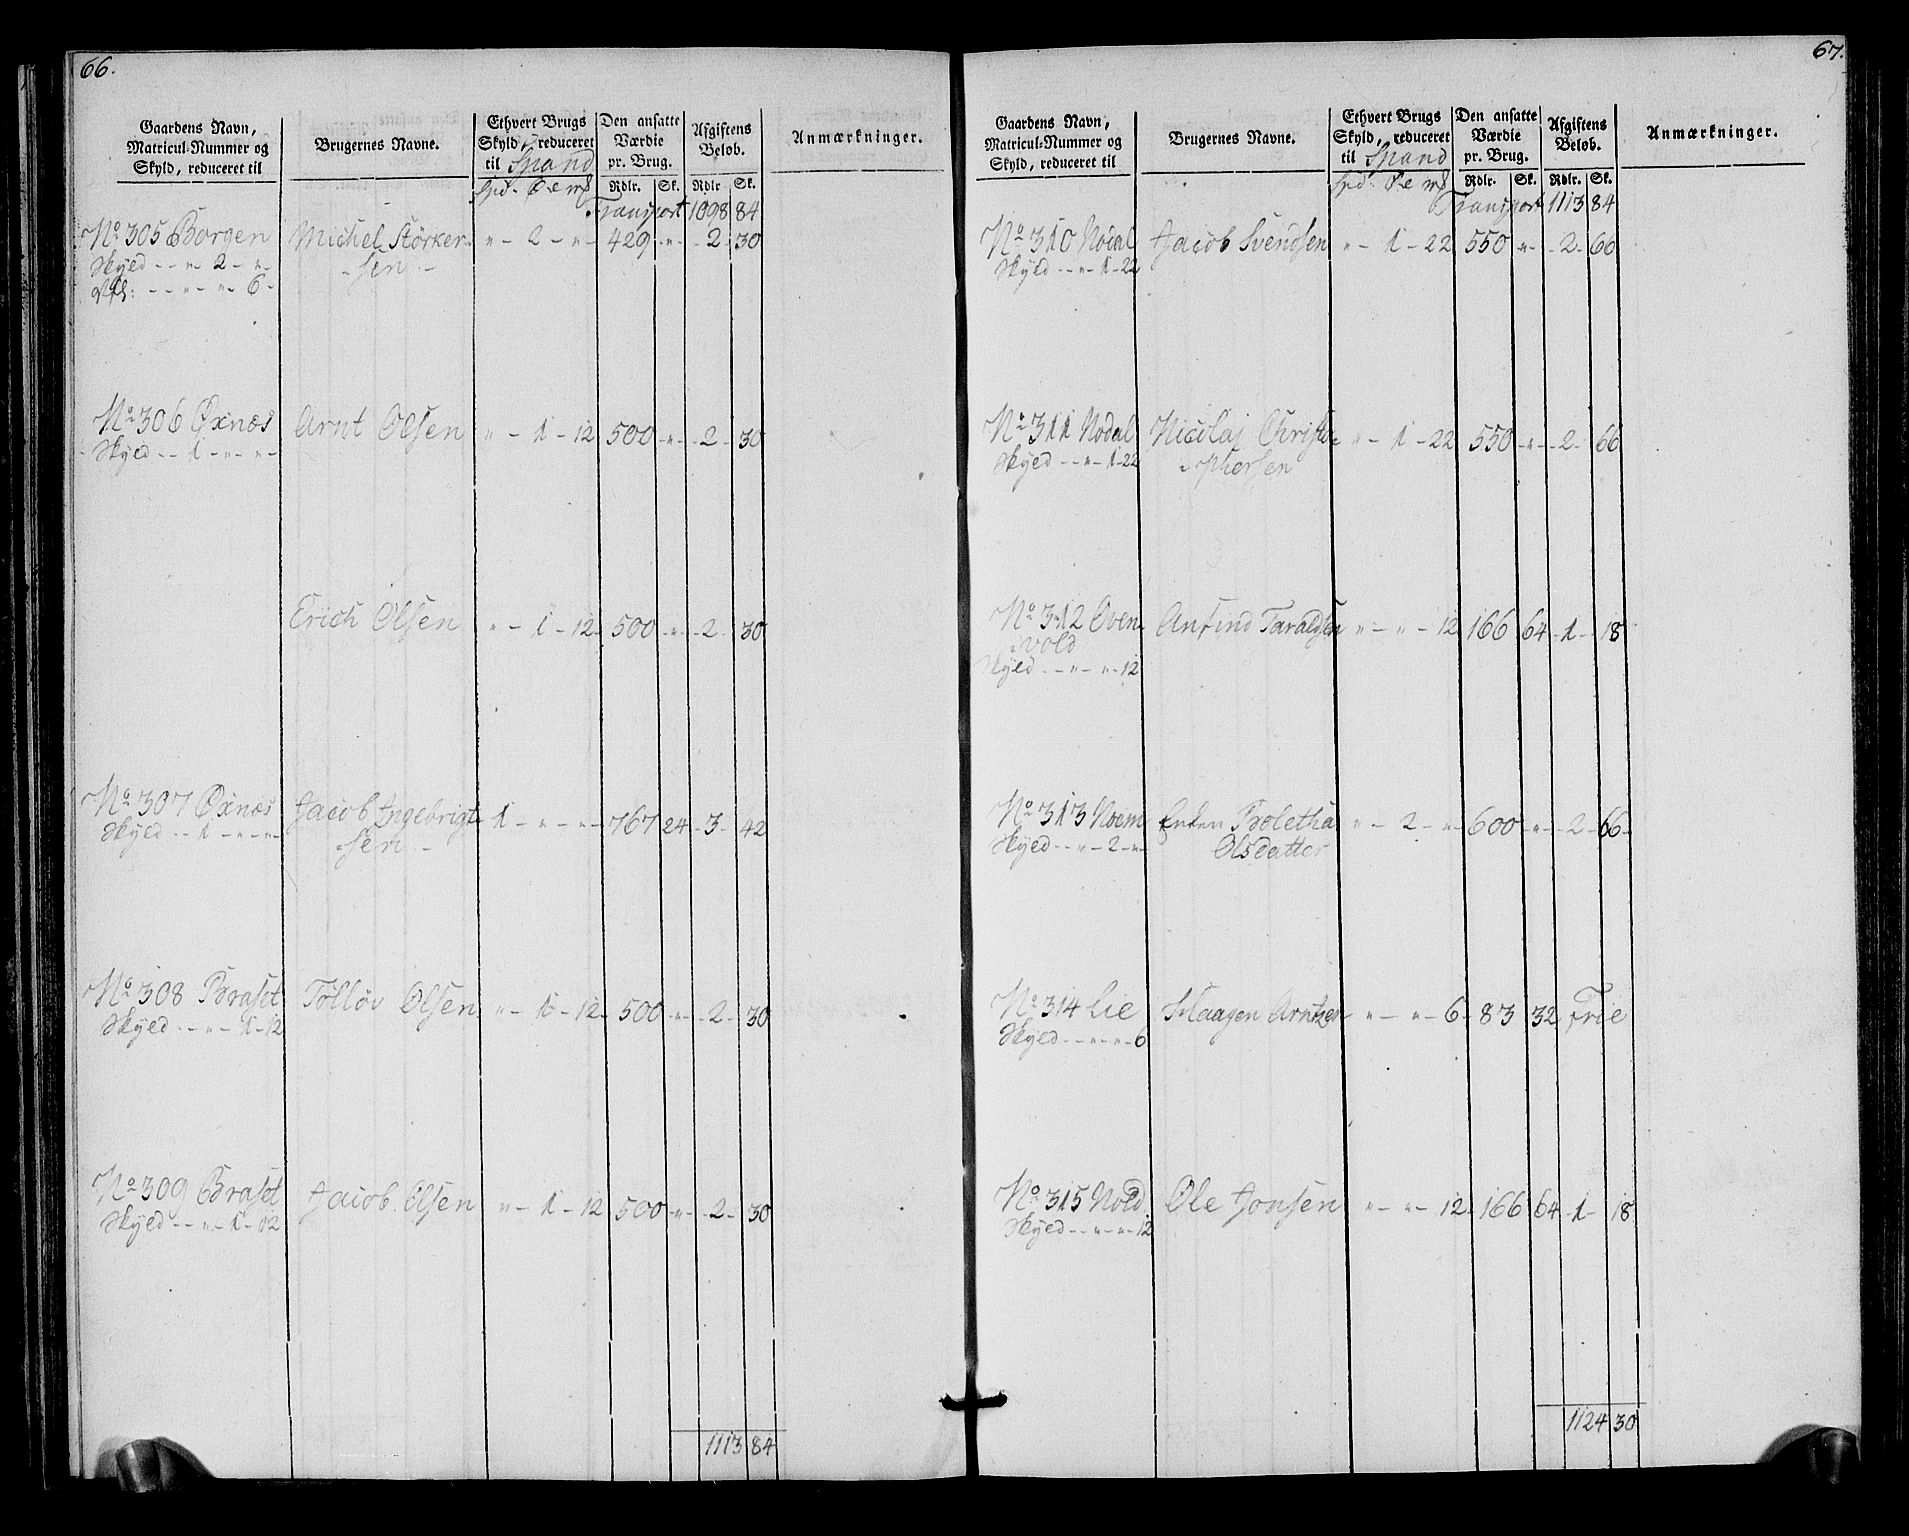 66.
Gaardens Navn, Matricul-Nummer og Skyld, reduceret til | Brugernes Navne. | Ethvert Brugs Skyld, reduceret til Spand | Den ansatte Værdie pr. Brug. | Afgiftens Beløb. | Anmærkninger.
Spd. Ø e mß | Rdlr. | Sk. | Rdlr. | Sk.
Transport 1098 84
No 305 Borgen | Michel Störker- | " - 2 - " - | 429 | - " - | 2 - | 30
Skyld - - " - 2 - " -
- sen -
- - " - " - 6 -
No 306 Øxnæs | Arnt Olsen | " - 1 - 12 | 500 | - " - | 2 - | 30
Skyld - - 1 - " - " -
Erich Olsen | " - 1 - 12 | 500 | - " - | 2 - | 30
No 307 Øxnæs | Jacob Ingebrigt- | 1 - " - " - | 767 | 24 | 3 - | 42
Skyld - - 1 - " - " -
- sen -
No 308 Braset | Tölløv Olsen | " - 1 - 12 | 500 | - " - | 2 - | 30
Skyld - - " - 1 - 12
No 309 Braset | Jacob Olsen | " - 1 - 12 | 500 | - " - | 2 - | 30
Skyld - - " - 1 - 12
1113 84
67.
Gaardens Navn, Matricul-Nummer og Skyld, reduceret til | Brugernes Navne. | Ethvert Brugs Skyld, reduceret til Spand | Den ansatte Værdie pr. Brug. | Afgiftens Beløb. | Anmærkninger.
Spd. Ø e mß | Rdlr. | Sk. | Rdlr. | Sk.
Transport 1113 84
No 310 Nodal | Jacob Svendsen | " - 1 - 22 | 550 | - " - | 2 - | 66
Skyld - - " - 1 - 22
No 311 Nodal | Nicolaj Christo- | " - 1 - 22 | 550 | - " - | 2 - | 66
Skyld - - " - 1 - 22
- phersen
No 312 Oven- | Anfind Taraldsen | " - " - 12 | 166 | 64 | 1 - | 18
- vold
Skyld - - " - " - 12
No 313 Noem | Enken Troletha | " - 2 - " | 600 | - " - | 2 - | 66
Skyld - - " - 2 - " -
Olsdatter
No 314 Lie | Haagen Arntzen | " - " - 6 | 83 | 32 | Frie
Skyld - - " - " - 6
No 315 Nold | Ole Jonsen | " - " - 12 | 166 | 64 | 1 - | 18
Skyld - - " - " - 12
1124 30